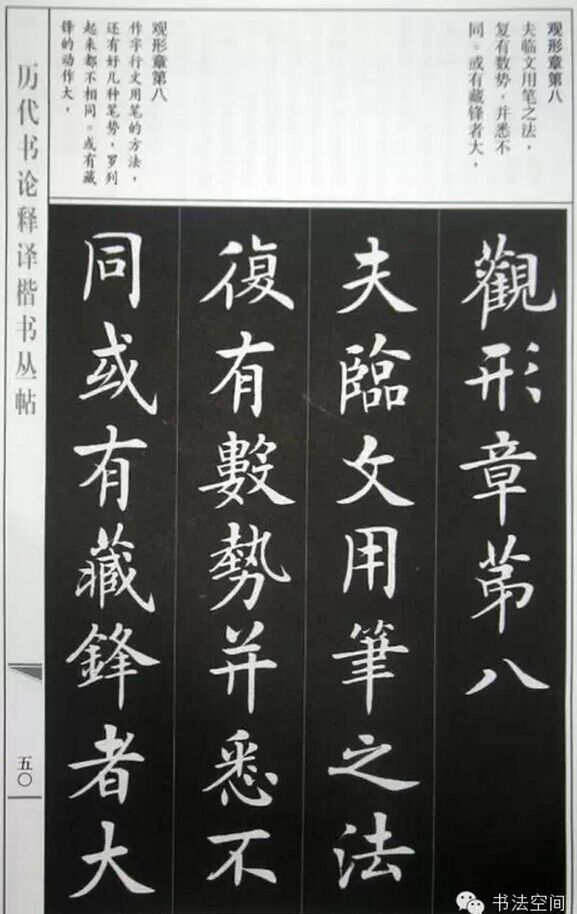 观形章第八
夫临文用笔之法，
复有数势，并悉不
同。或有藏锋者大，
观形章第八
作字行文用笔的方法，
还有好几种笔势，罗列
起来都不相同。或有藏
锋的动作大，
觀形章苐八
夫臨文用筆之法
復有數勢并悉不
同或有藏鋒者大
历代书论释译楷书丛帖
五〇
书法空间